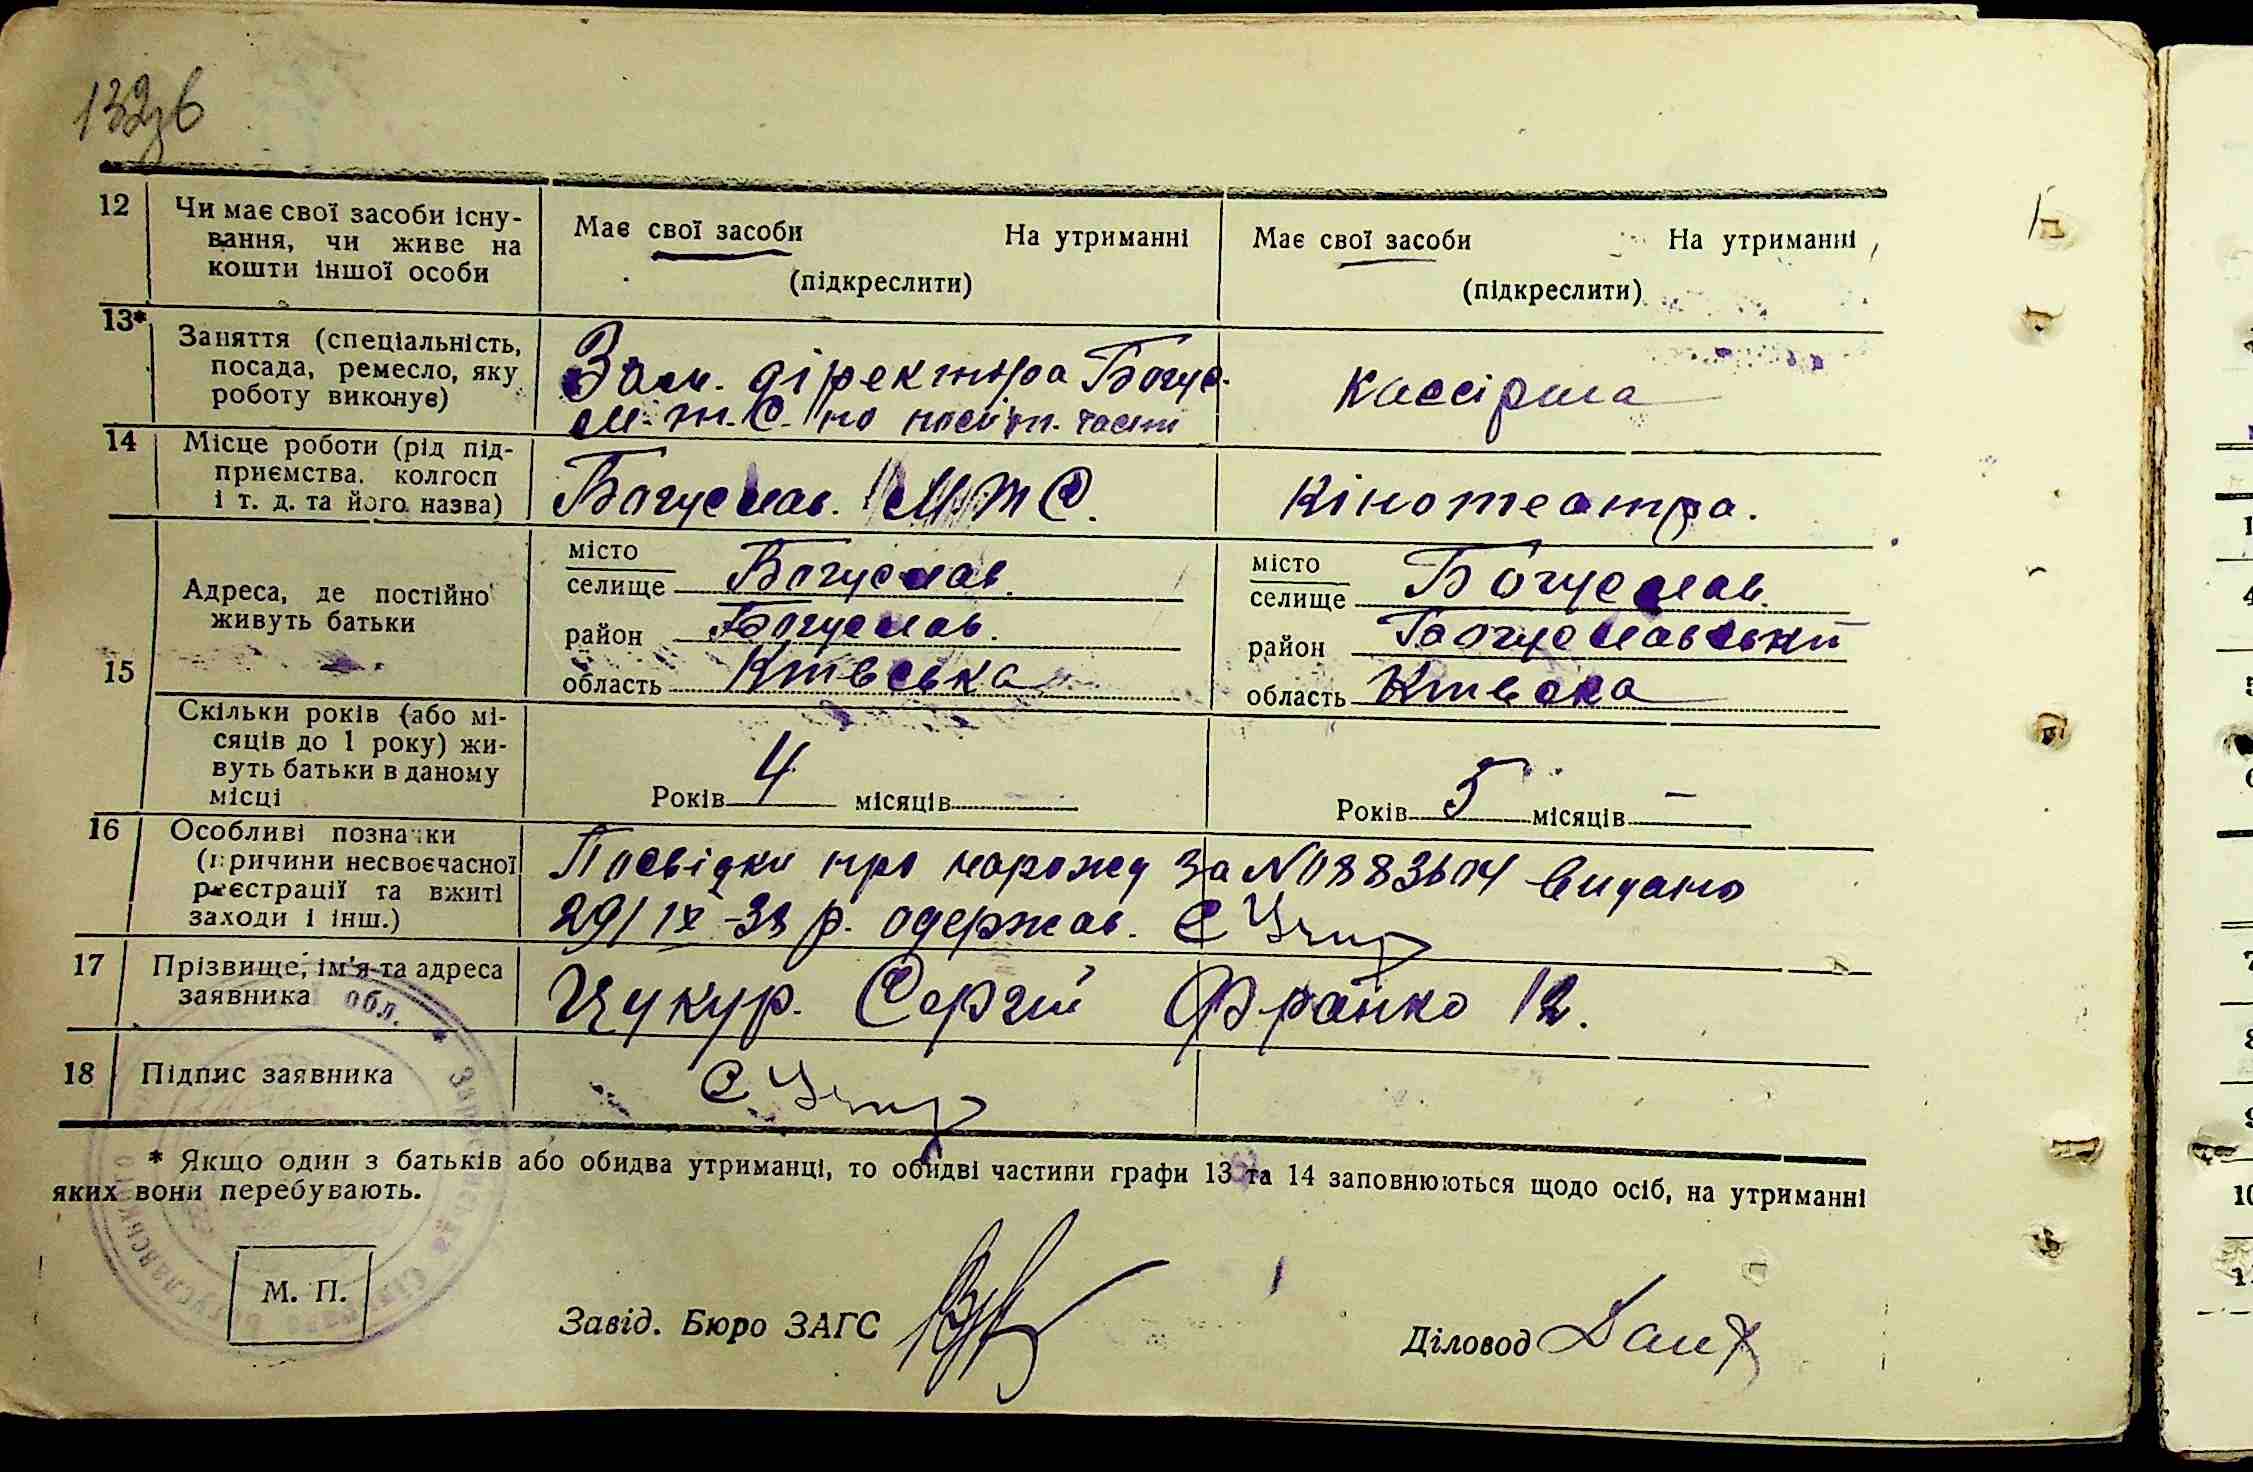 132зв
12 Чи має свої засоби існу-
вання, чи живе на
кошти іншої особи
Має свої засоби На утриманні
(підкреслити)
Має свої засоби На утриманні
(підкреслити)
13* Заняття (спеціальність,
посада, ремесло, яку
роботу виконує)
Зам. діректора Богус.
М.Т.С. по політ. част
Кассірша
14 Місце роботи (рід під-
приємства, колгосп
і т. д. та його назва)
Богуслав. МТС.
Кінотеатра.
15 Адреса, де постійно
живуть батьки
місто
селище Богуслав.
район Богуслав.
область Київська
місто
селище Богуслав.
район Богуславський
область Київска
Скільки років (або мі-
сяців до 1 року) жи-
вуть батьки в даному
місці
Років 4 місяців
Років 5 місяців —
16 Особливі позначки
(причини несвоєчасної
реєстрації та вжиті
заходи і інш.)
Посвідки про нарожд за № 0883604 видано
29/IX-38 р. одержав.
17 Прізвище, ім'я та адреса
заявника
Цукур. Сергій Франко 12.
18 Підпис заявника
* Якщо один з батьків або обидва утриманці, то обидві частини графи 13 та 14 заповнюються щодо осіб, на утриманні
яких вони перебувають.
М. П.
Завід. Бюро ЗАГС
Діловод